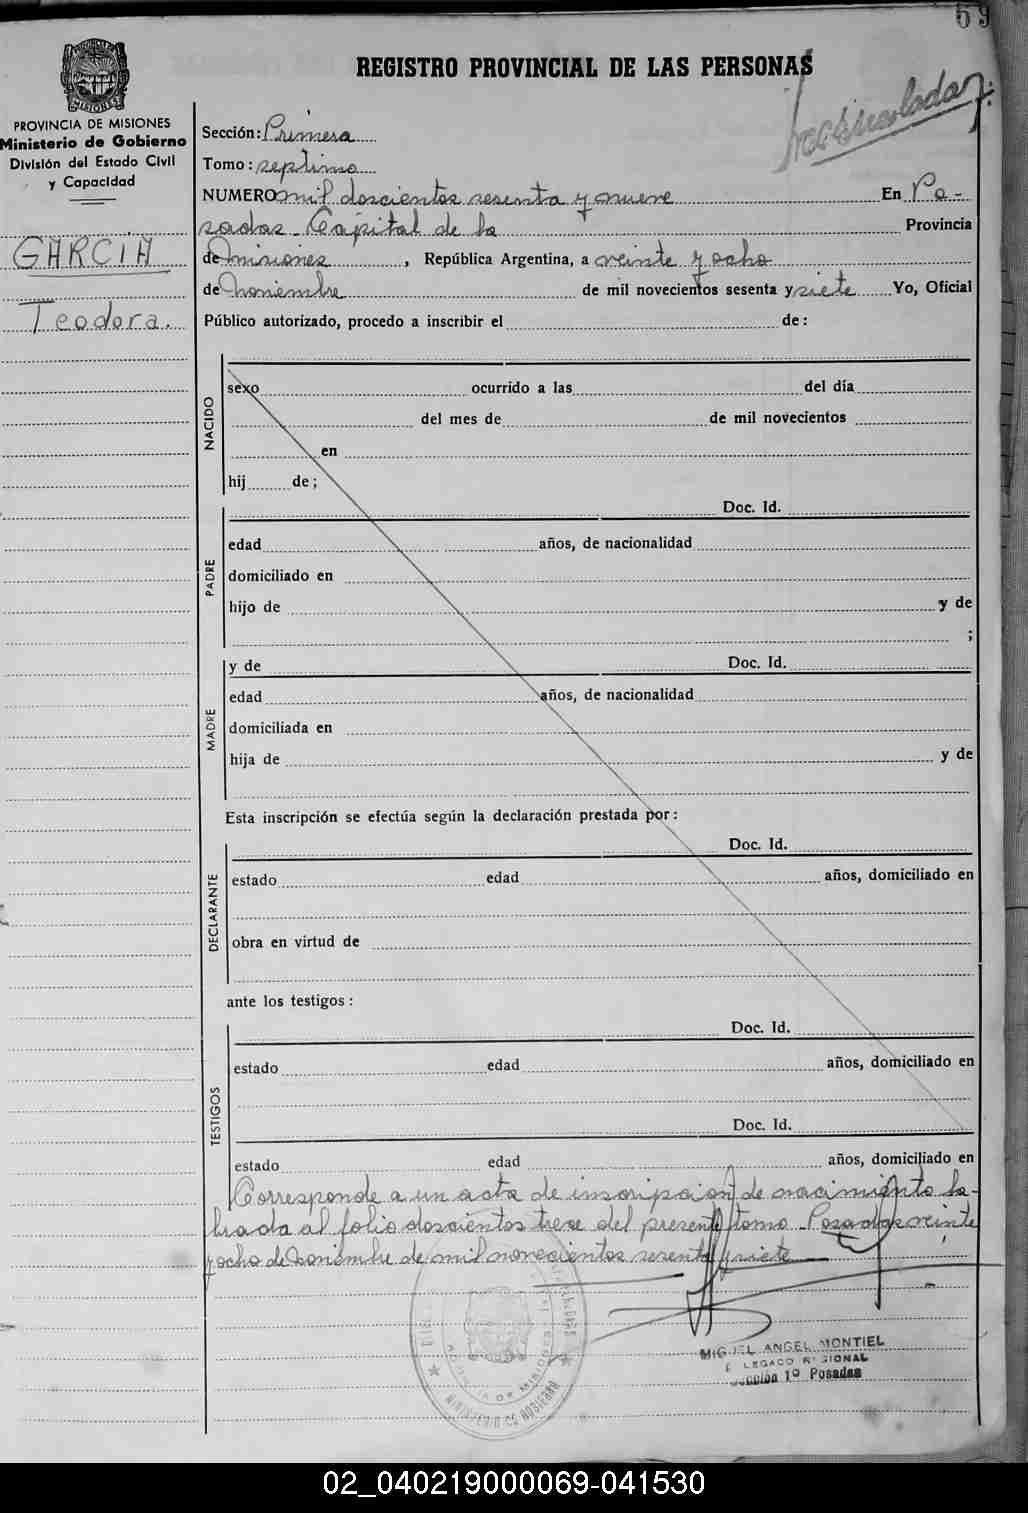 69
REGISTRO PROVINCIAL DE LAS PERSONAS
PROVINCIA DE MISIONES
Ministerio de Gobierno
División del Estado Civil
y Capacidad
GARCIA
Teodora.
Sección: Primera
Tomo: septimo
NUMERO mil doscientos sesenta y nueve En Po-
sadas Capital de la Provincia
de Misiones, República Argentina, a veinte y ocho
de noviembre de mil novecientos sesenta y siete Yo, Oficial
Público autorizado, procedo a inscribir el de:
NACIDO
sexo ocurrido a las del día
del mes de de mil novecientos
en
hij de;
Doc. Id.
PADRE
edad años, de nacionalidad
domiciliado en
hijo de y de
;
y de Doc. Id.
MADRE
edad años, de nacionalidad
domiciliada en
hija de y de
Esta inscripción se efectúa según la declaración prestada por:
Doc. Id.
DECLARANTE
estado edad años, domiciliado en
obra en virtud de
ante los testigos:
Doc. Id.
TESTIGOS
estado edad años, domiciliado en
Doc. Id.
estado edad años, domiciliado en
Corresponde a un acta de inscripcion de nacimiento la-
brada al folio doscientos trese del presente tomo Posadas veinte
y ocho de noviembre de mil novecientos sesenta y siete
MIGUEL ANGEL MONTIEL
Sección 1º Posadas
MINISTERIO DE GOBIERNO
02_040219000069-041530